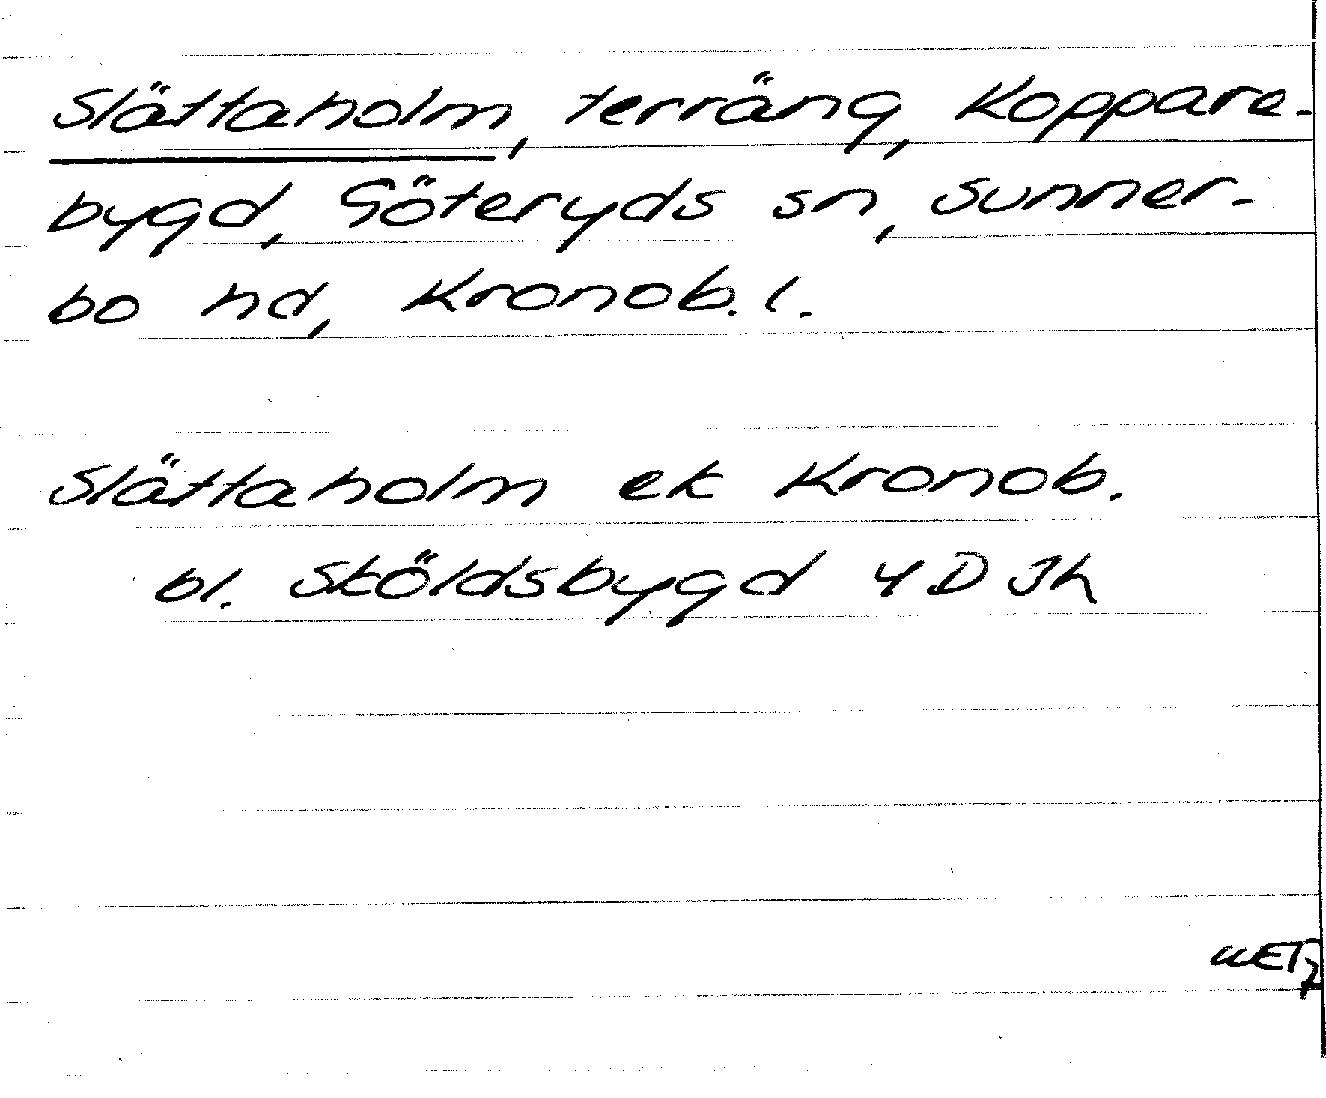 Slättaholm, terräng, Koppare-
bygd, Göteryds sn, Sunner-
bo hd, Kronob. l.
Slättaholm ek Kronob.
bl. Sköldsbygd 4D3h